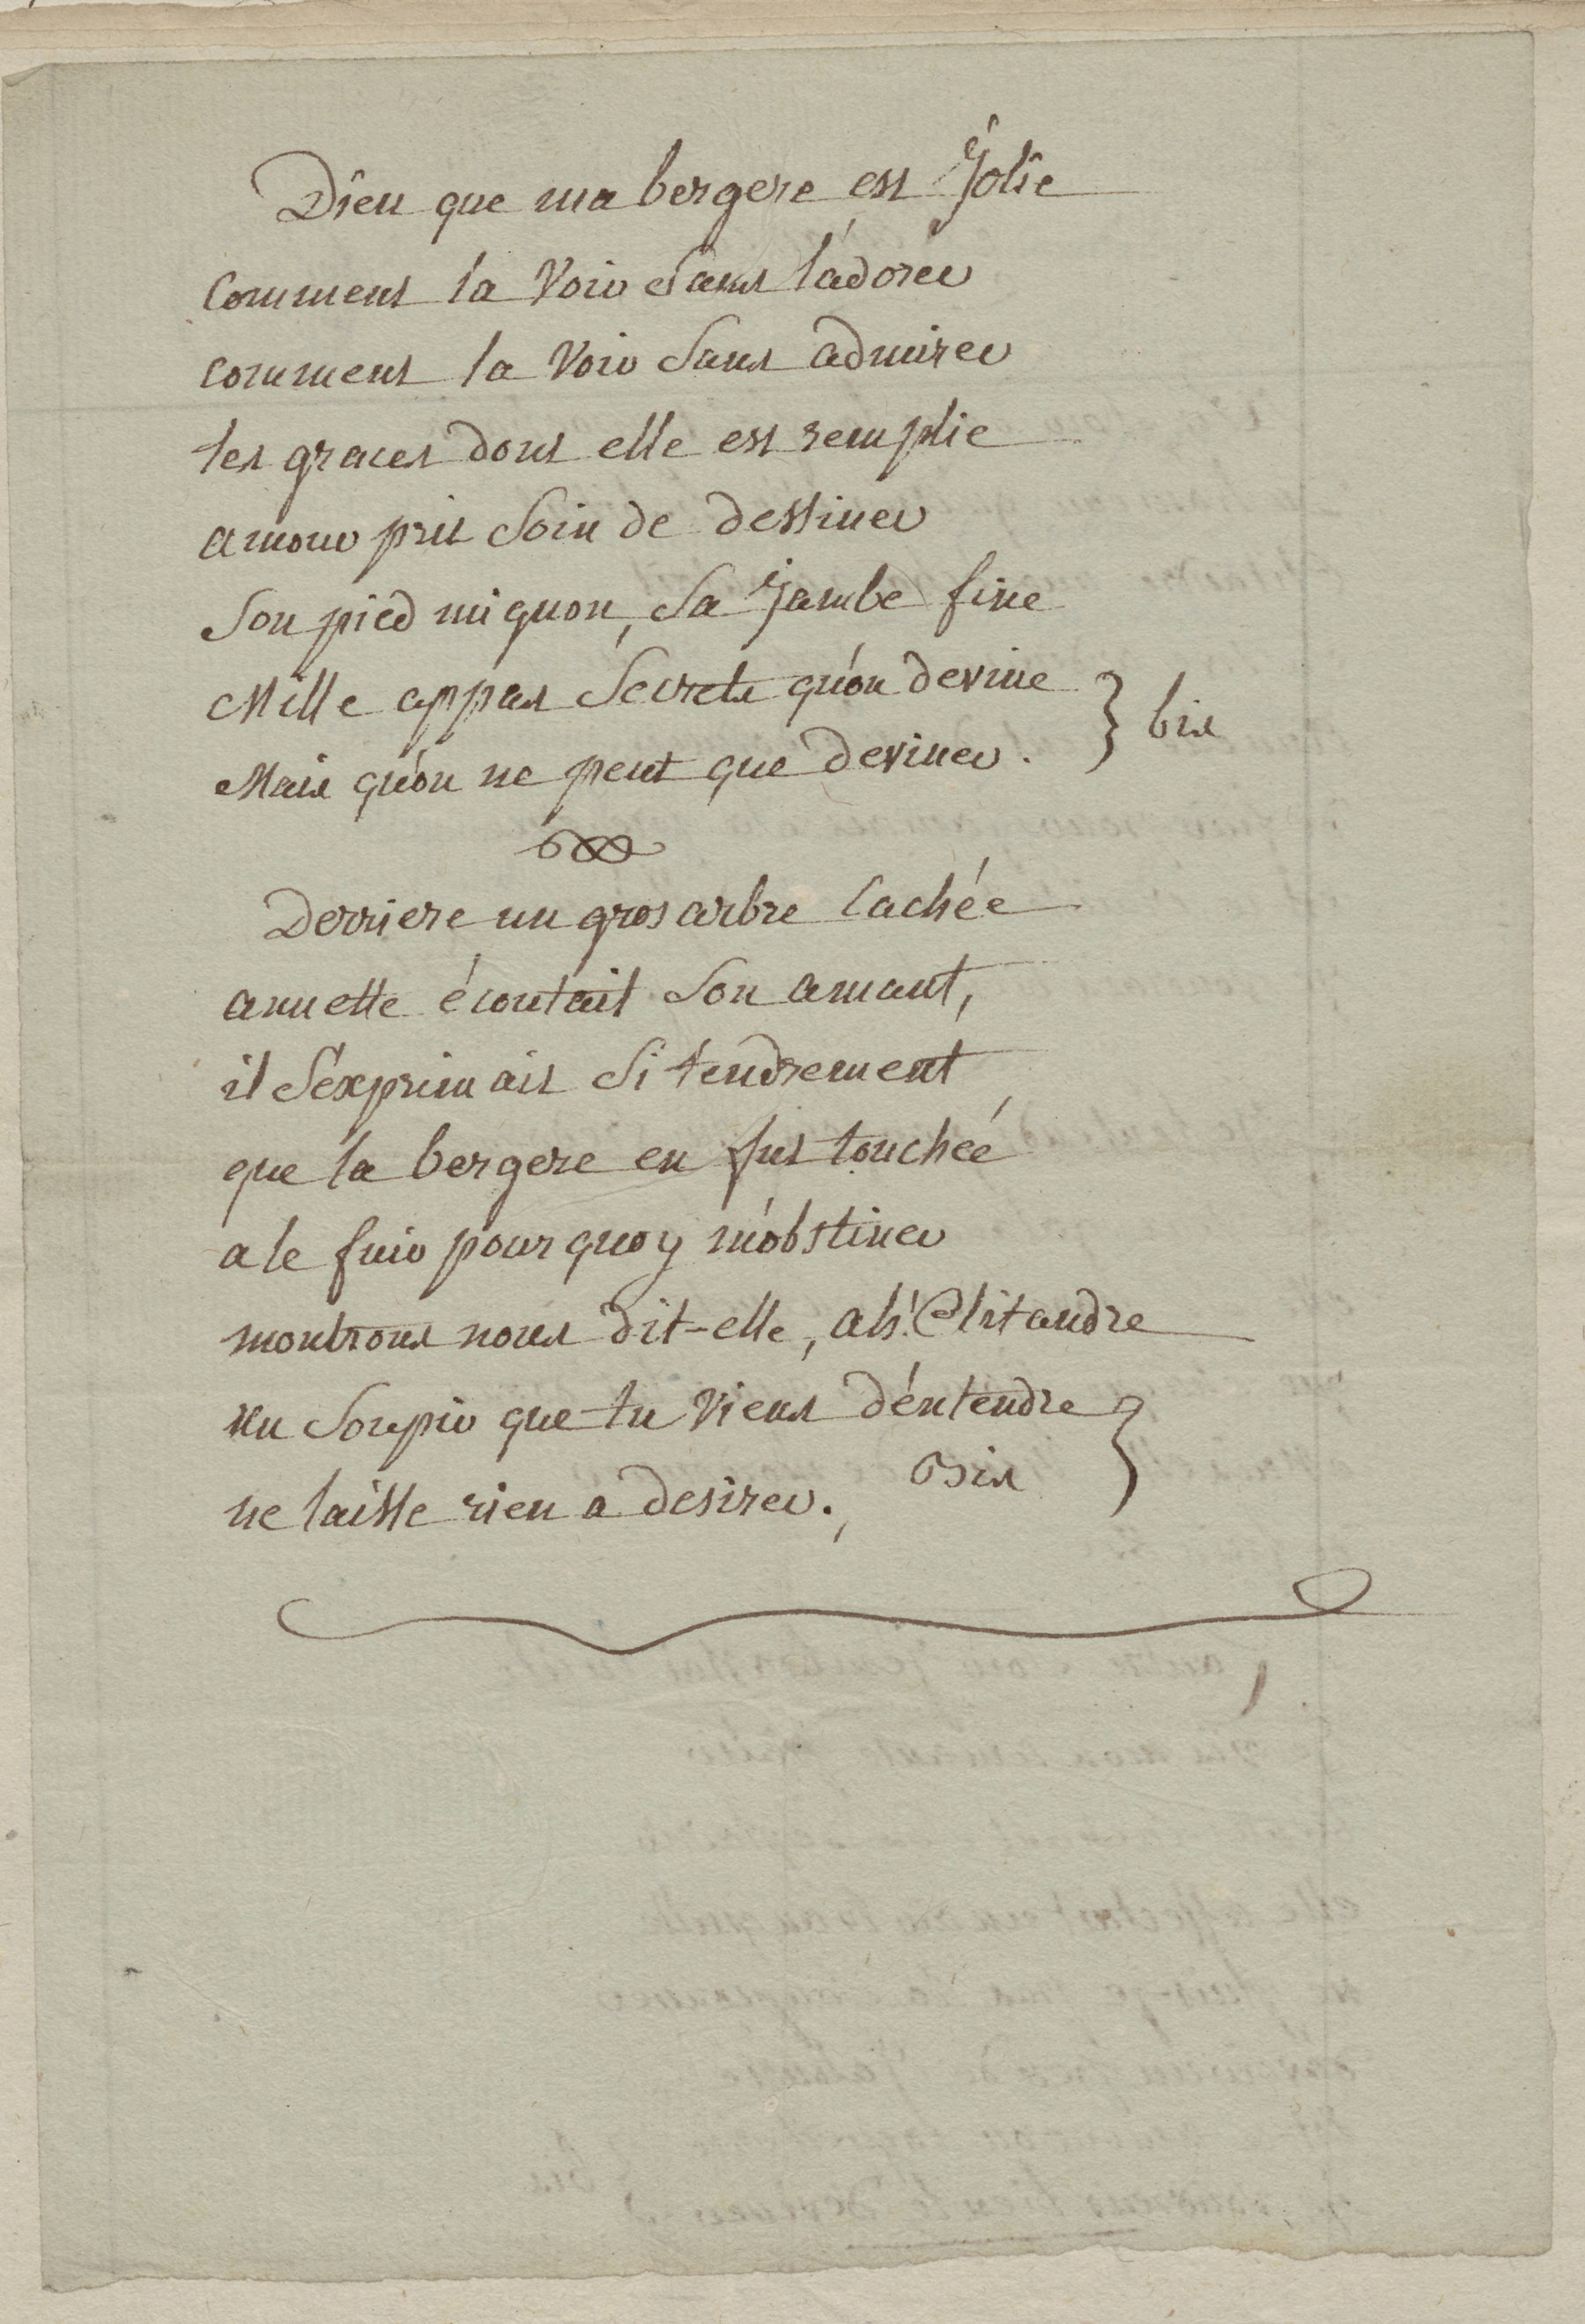 Dieu que ma bergere est Jolie
Comment la Voir Sans l'adorer
comment la Voir Sans admirer
les graces dont elle est remplie
amour prit Soin de destiner
Son pied mignon, Sa jambe fine
Mille appas Secrets qu'on devine } bis
Mais qu'on ne peut que deviner.
Derriere un gros arbre Cachée
annette écoutait Son amant,
il S'exprimait Si tendrement
que la bergere en fut touchée
a le fuir pourquoy m'obstiner
montrons nous dit-elle, ah! Clitandre
un Soupir que tu Viens d'entendre }
ne laisse rien a desirer. Bis